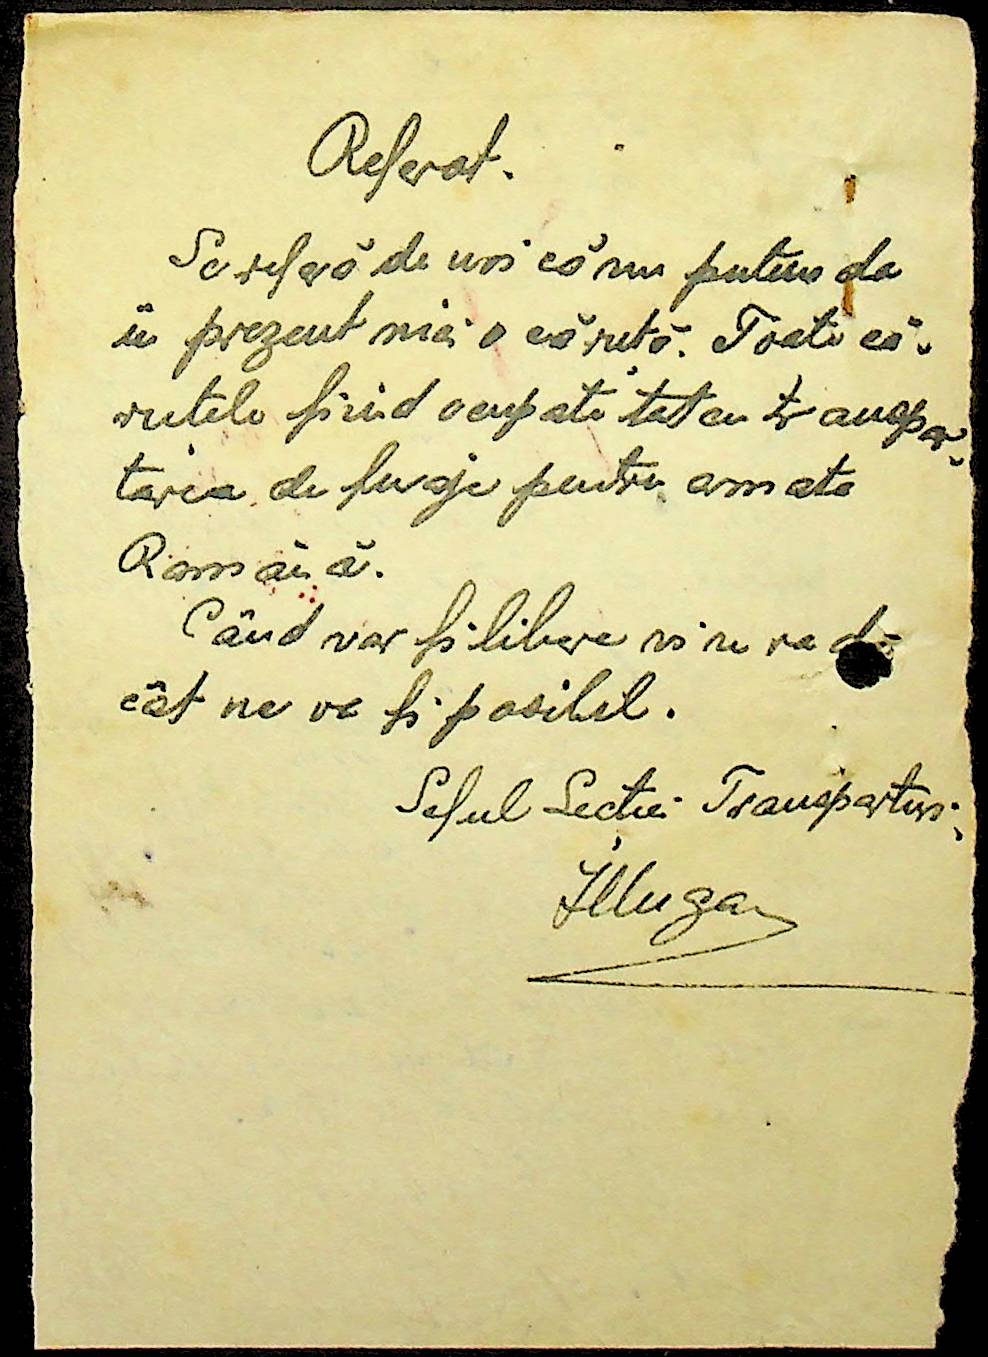 Referat.
Se referă de noi că nu putem da
în prezent nici o căruță. Toate că-
ruțele fiind ocupate tot cu transpor-
tarea de furaje pentru armata
Română.
Când vor fi libere vi se va da
cât ne va fi posibil.
Șeful Secției Transporturi